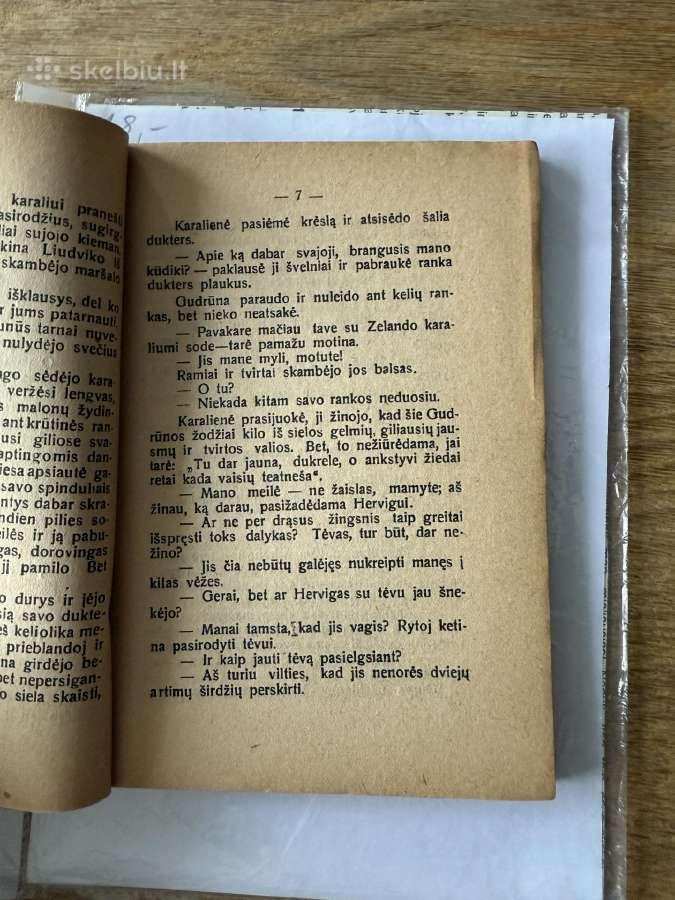 skelbiu.lt
18,-
karaliui pranešti
asirodžius, sugirg-
liai sujojo kieman,
kina Liudviko iš
skambėjo maršalo
išklausys, dėl ko
ir jums patarnauti.
tarnai nuve-
nulydėjo svečius
ago sėdėjo kara-
veržėsi lengvas,
s malonų žydin-
ant krūtinės ran-
usi giliose sva-
aptingomis dan-
iesa apsiautė ga-
savo spinduliais
ntys dabar skra-
ndien pilies so-
eilės ir ją pabu-
gas, dorovingas
ji pamilo Bet
o durys ir įėjo
sią savo dukte-
eš keliolika me-
prieblandoj ir
na girdėjo be-
bet nepersigan-
o siela skaisti,
— 7 —
Karalienė pasiėmė krėslą ir atsisėdo šalia
dukters.
— Apie ką dabar svajoji, brangusis mano
kūdiki? — paklausė ji švelniai ir pabraukė ranka
dukters plaukus.
Gudrūna paraudo ir nuleido ant kelių ran-
kas, bet nieko neatsakė.
— Pavakare mačiau tave su Zelando kara-
liumi sode—tarė pamažu motina.
— Jis mane myli, motute!
Ramiai ir tvirtai skambėjo jos balsas.
— O tu?
— Niekada kitam savo rankos neduosiu.
Karalienė prasijuokė, ji žinojo, kad šie Gud-
rūnos žodžiai kilo iš sielos gelmių, giliausių jaus-
mų ir tvirtos valios. Bet, to nežiūrėdama, jai
tarė: „Tu dar jauna, dukrele, o ankstyvi žiedai
retai kada vaisių teatneša“.
— Mano meilė — ne žaislas, mamyte; aš
žinau, ką darau, pasižadėdama Hervigui.
— Ar ne per drąsus žingsnis taip greitai
išspręsti toks dalykas? Tėvas, tur būt, dar ne-
žino?
— Jis čia nebūtų galėjęs nukreipti manęs į
kitas vėžes.
— Gerai, bet ar Hervigas su tėvu jau šne-
kėjo?
— Manai tamsta, kad jis vagis? Rytoj keti-
na pasirodyti tėvui.
— Ir kaip jauti tėvą pasielgsiant?
— Aš turiu vilties, kad jis nenorės dviejų
artimų širdžių perskirti.